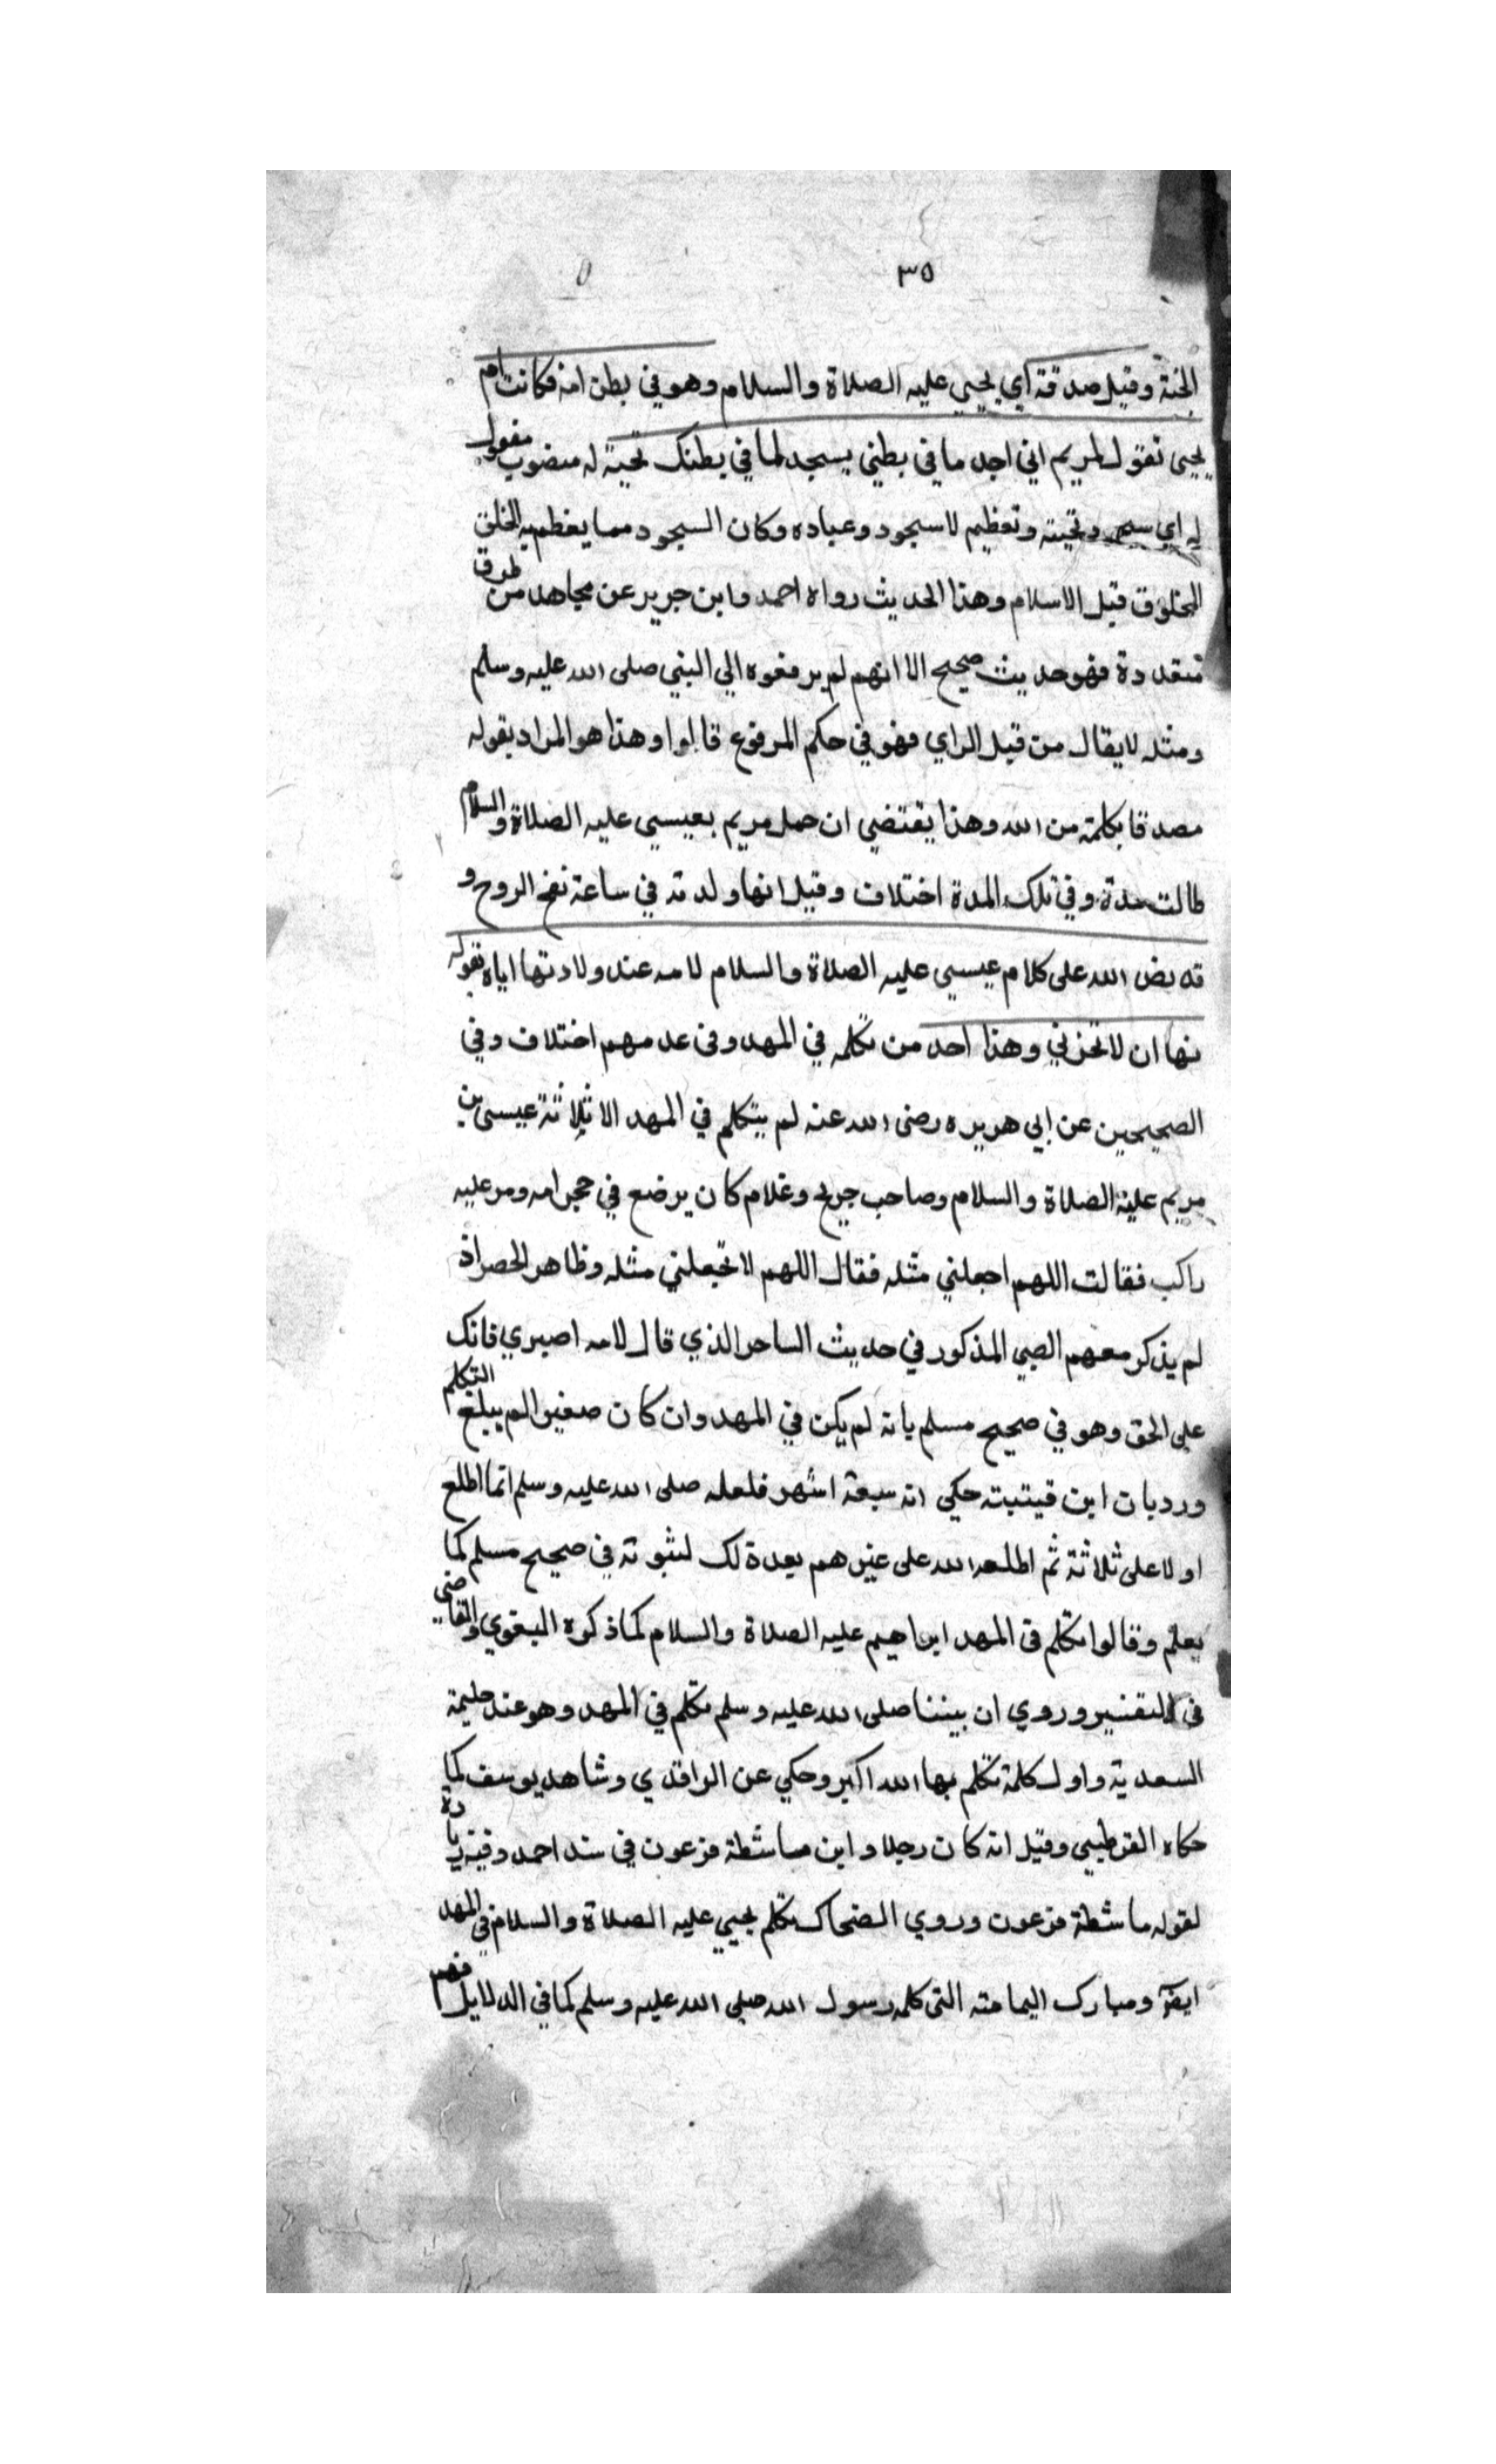 ٣٥
الجنة وقيل صدقته اي يحيى عليه الصلاة والسلام وهو في بطن امه فكانت ام
يحيى تقول لمريم اني اجد ما في بطني يسجد لما في بطنك تحية له منصوب مفعول
له اي سجود تحيته وتعظيم لاسجود وعباده وكان السجود مما يعظم به الخلق
المخلوق قبل الاسلام وهذا الحديث رواه احمد وابن جرير عن مجاهد من طرق
متعددة فهو حديث صحيح الا انهم لم يرفعوه الي النبي صلى الله عليه وسلم
ومثله لايقال من قبل الراي فهو في حكم المرفوع قالوا وهذا هو المراد بقوله
مصدقا بكلمة من الله وهذا يقتضي ان حمل مريم بعيسي عليه الصلاة والسلام
طالت مدة وفي تلك المدة اختلاف وقيل انها ولدته في ساعة نفخ الروح و
قد نص الله على كلام عيسي عليه الصلاة والسلام لامه عند ولادتها اياه بقوله
لها ان لا تحزني وهذا احد من تكلم في المهد وفى عدمهم اختلاف وفي
الصحيحين عن ابي هريره رضى الله عنه لم يتكلم في المهد الا ثلاثة عيسى بن
مريم عليه الصلاة والسلام وصاحب جريج وغلام كان يرضع في حجر امه ومر عليه
راكب فقالت اللهم اجعلني مثله فقال اللهم لا تجعلني مثله وظاهر الحصر اذ
لم يذكر معهم الصبي المذكور في حديث الساحر الذي قال لامه اصبري فانك
على الحق وهو في صحيح مسلم بانه لم يكن في المهد وان كان صغيرا لم يبلغ التكلم
ورد بان ابن قيتبته حكي انه سبعة اشهر فلعله صلى الله عليه وسلم انما اطلع
اولا على ثلاثة ثم اطلعه الله على غيرهم بعد ذلك لثبوته في صحيح مسلم كما
يعلم وقالوا تكلم فى المهد ابراهيم عليه الصلاة والسلام كما ذكره البغوي والقاضي
فى التفسير وروي ان بيننا صلى الله عليه وسلم تكلم في المهد وهو عند حليمة
السعدية واول كلمة تكلم بها الله اكبر وحكي عن الواقدي وشاهد يوسف كما
حكاه القرطبي وقيل انه كان رجلا وابن ماشطة فرعون في سند احمد وفيه زيادة
لقوله ماشطة فرعون وروي الضحاك تكلم يحيي عليه الصلاة والسلام في المهد
ايضا ومبارك اليمامته التى كلمه رسول الله صلى الله عليه وسلم كما في الدلايل فهم